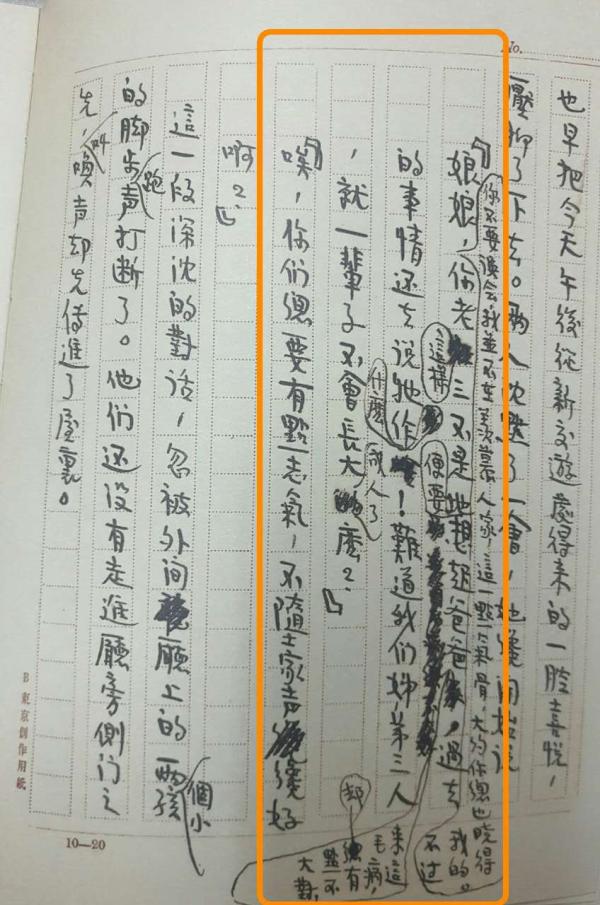 No.
也早把今天午後從新交遊處得来的一腔喜悅，
壓抑了下去。兩人沈默了一會，她纔開始說
你不要誤会，我並不在羡慕人家，這一點氣骨，大約你總也曉得我的。不过
『娘娘，你老三又不是
這樣
想起爸爸，過去
便要
的事情还去說牠作
什麼
！難道我們姊弟三人
成人了
，就一輩子不會長大麽？』
却總有點不大對，
来這毛病，
『唉，你们總要有點志氣，不隨士家声纔好
啊？』
這一段深沈的對话，忽被外间廳上的兩孩
個小
的脚步声打断了。他们还没有走進廳旁側门之
跑
先，喚声却先傳進了屋裏。
叫
B 東京創作用紙
10—20